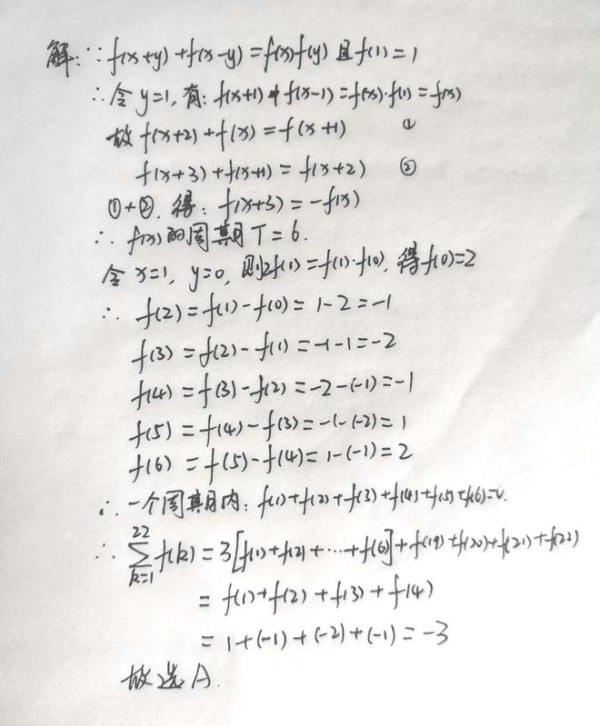 解:∵f(x+y)+f(x-y)=f(x)f(y)且f(1)=1
∴令y=1,有:f(x+1)+f(x-1)=f(x)·f(1)=f(x)
故f(x+2)+f(x)=f(x+1) ①
f(x+3)+f(x+1)=f(x+2) ②
①+②,得:f(x+3)=-f(x)
∴f(x)的周期T=6.
令x=1,y=0,则2f(1)=f(1)·f(0),得f(0)=2
∴f(2)=f(1)-f(0)=1-2=-1
f(3)=f(2)-f(1)=-1-1=-2
f(4)=f(3)-f(2)=-2-(-1)=-1
f(5)=f(4)-f(3)=-1-(-2)=1
f(6)=f(5)-f(4)=1-(-1)=2
∴一个周期内:f(1)+f(2)+f(3)+f(4)+f(5)+f(6)=0.
∴∑_{k=1}^{22}f(k)=3[f(1)+f(2)+…+f(6)]+f(19)+f(20)+f(21)+f(22)
=f(1)+f(2)+f(3)+f(4)
=1+(-1)+(-2)+(-1)=-3
故选A.